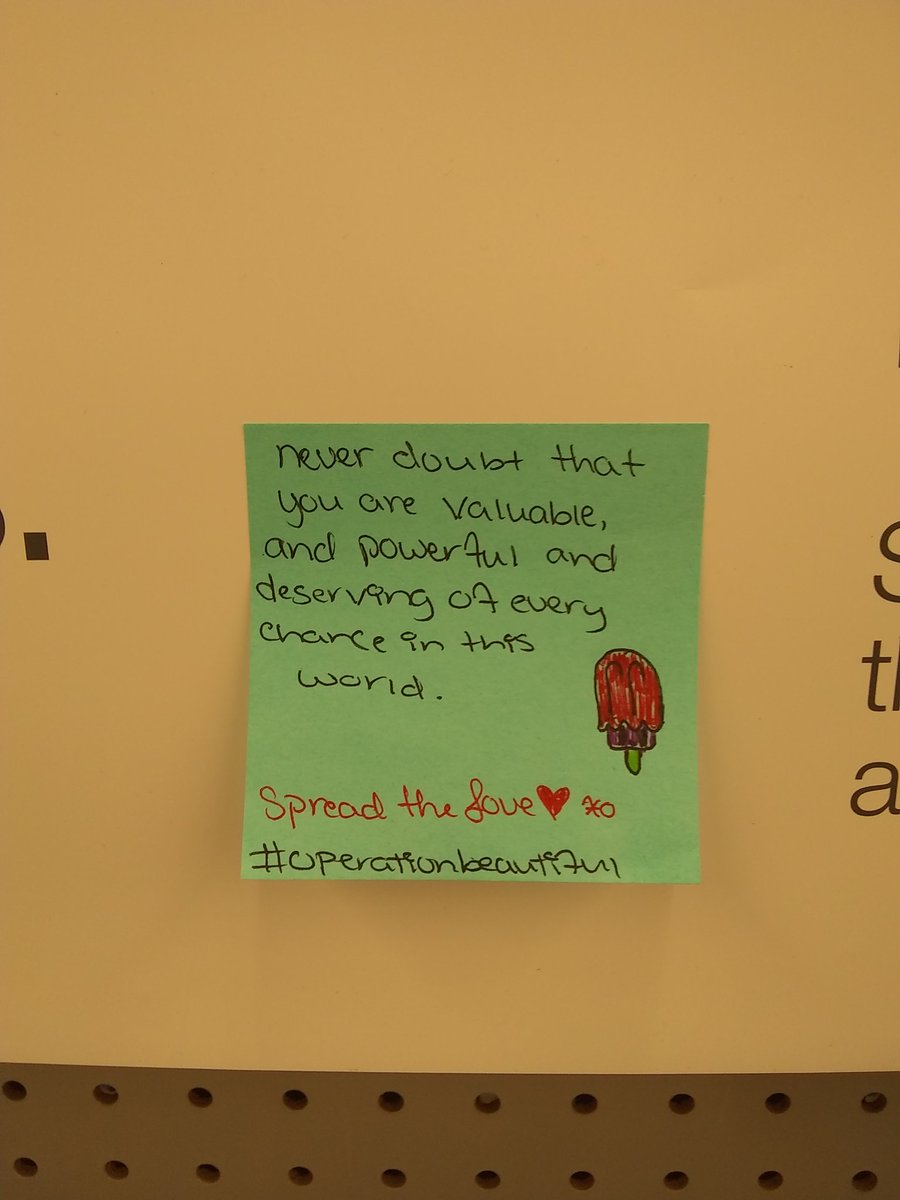 never doubt that
you are valuable,
and powerful and
deserving of every
chance in this
world.
Spread the love ♥ xo
#operationbeautiful